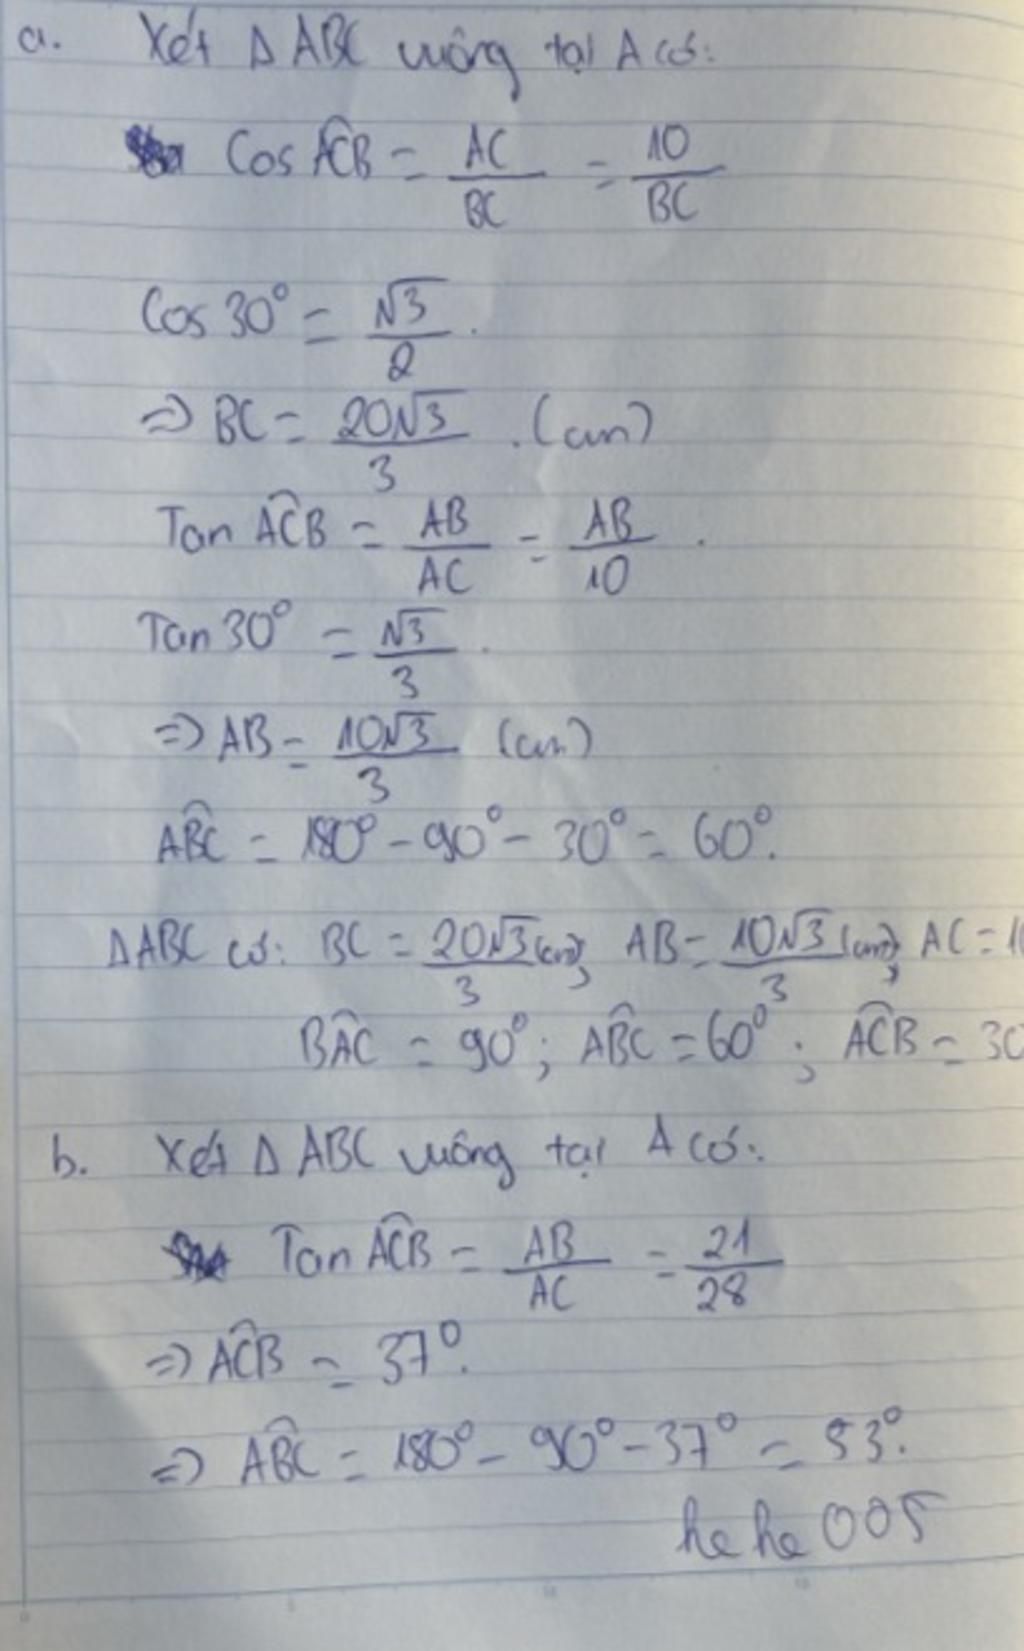 a. Xét Δ ABC vuông tại A có:
Cos ACB = AC/BC = 10/BC
Cos 30° = √3/2.
=> BC = 20√3/3. (cm)
Tan ACB = AB/AC = AB/10.
Tan 30° = √3/3.
=> AB = 10√3/3 (cm)
ABC = 180° - 90° - 30° = 60°.
Δ ABC có: BC = 20√3/3 (cm); AB = 10√3/3 (cm); AC = 1
BAC = 90°; ABC = 60°; ACB = 30
b. Xét Δ ABC vuông tại A có:
Tan ACB = AB/AC = 21/28
=> ACB = 37°.
=> ABC = 180° - 90° - 37° = 53°.
hehe005